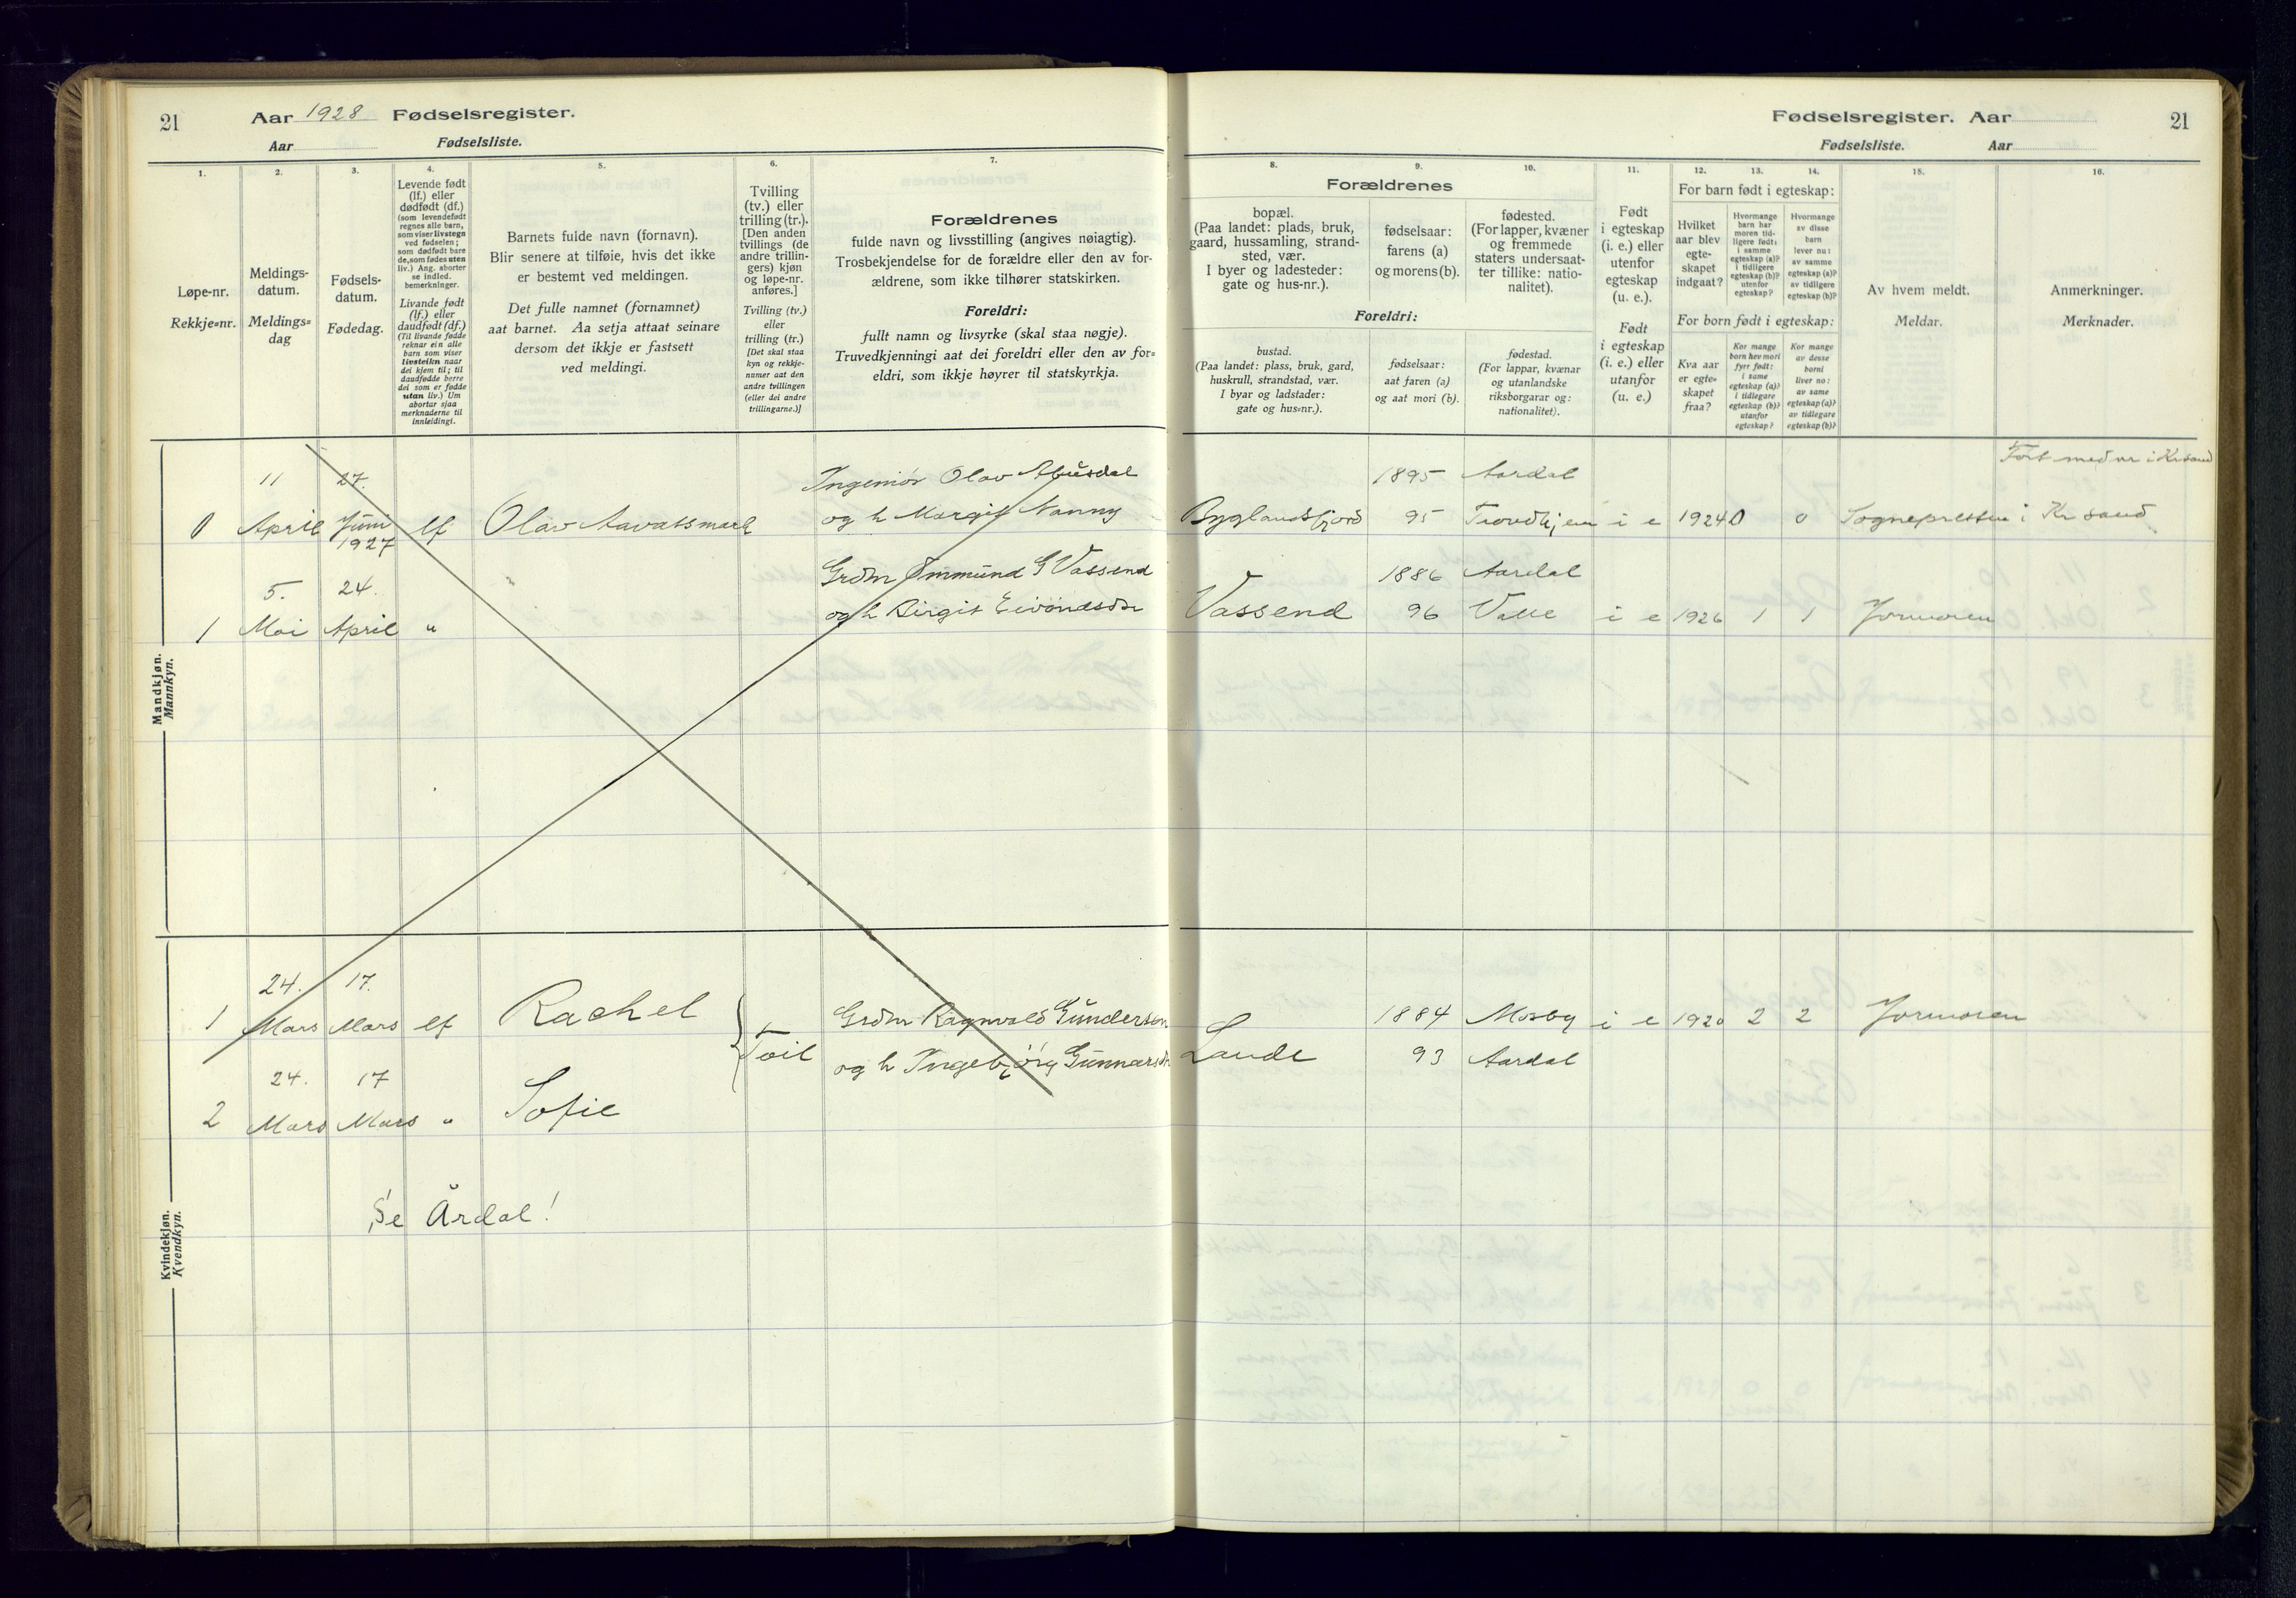 21 Aar 1928 Fødselsregister.
Aar Fødselsliste.
Fødselsregister. Aar 21
Fødselsliste. Aar
1. 2. 3. 4. 5. 6. 7. 8. 9. 10. 11. 12. 13. 14. 15. 16.
Løpe-nr.
Rekkje=nr.
Meldings-
datum.
Meldings=
dag
Fødsels-
datum.
Fødedag.
Levende født
(lf.) eller
dødfødt (df.)
(som levendefødt
regnes alle barn,
som viser livstegn
ved fødselen;
som dødfødt bare
de, som fødes uten
liv.) Ang. aborter
se indled.
bemerkninger.
Livande født
(lf.) eller
daudfødt (df.)
(Til livande fødde
reknar ein alle
barn som viser
livsteikn naar
dei kjem til; til
daudfødde berre
dei som er fødde
utan liv.) Um
abortar sjaa
merknaderne til
innleidingi.
Barnets fulde navn (fornavn).
Blir senere at tilføie, hvis det ikke
er bestemt ved meldingen.
Det fulle namnet (fornamnet)
aat barnet. Aa setja attaat seinare
dersom det ikkje er fastsett
ved meldingi.
Tvilling
(tv.) eller
trilling (tr.).
[Den anden
tvillings (de
andre trillin-
gers) kjøn
og løpe-nr.
anføres.]
Tvilling (tv.)
eller
trilling (tr.)
[Det skal staa
kyn og rekkje-
numer aat den
andre tvillingen
(eller dei andre
trillingarne.)]
Forældrenes
fulde navn og livsstilling (angives nøiagtig).
Trosbekjendelse for de forældre eller den av for-
ældrene, som ikke tilhører statskirken.
Foreldri:
fullt namn og livsyrke (skal staa nøgje).
Truvedkjenningi aat dei foreldri eller den av for=
eldri, som ikkje høyrer til statskyrkja.
Forældrenes
bopæl.
(Paa landet: plads, bruk,
gaard, hussamling, strand-
sted, vær.
I byer og ladesteder:
gate og hus-nr.).
fødselsaar:
farens (a)
og morens (b).
fødested.
(For lapper, kvæner
og fremmede
staters undersaat-
ter tillike: natio-
nalitet).
Foreldri:
bustad.
(Paa landet: plass, bruk, gard,
huskrull, strandstad, vær.
I byar og ladstader:
gate og hus=nr.).
fødselsaar:
aat faren (a)
og aat mori (b).
fødestad.
(For lappar, kvænar
og utanlandske
riksborgarar og:
nationalitet).
Født
i egteskap
(i. e.) eller
utenfor
egteskap
(u. e.).
Født
i egteskap
(i. e.) eller
utanfor
(u. e.)
For barn født i egteskap:
Hvilket
aar blev
egte-
skapet
indgaat?
Hvormange
barn har
moren tid-
ligere født:
i samme
egteskap (a)?
i tidligere
egteskap (b)?
utenfor
egteskap?
Hvormange
av disse
barn
lever nu:
av samme
egteskap (a)?
av tidligere
egteskap (b)?
For born født i egteskap:
Kva aar
er egte-
skapet
fraa?
Kor mange
born hev mori
fyrr født:
i same
egteskap (a)?
i tidlegare
egteskap (b)?
utanfor
egteskap?
Kor mange
av desse
borni
liver no:
av same
egteskap (a)?
av tidlegare
egteskap (b)?
Av hvem meldt.
Meldar.
Anmerkninger.
Merknader.
Mandkjøn.
Mannkyn.
Ført med nr i Krsand
11 27. Ingeniør Olav Abusdal 1895 Aardal
0 April Juni lf Olav Aavatsmark og h Margit Nanny Byglandsfjord 95 Trondhjem i e 1924 0 0 Sognepresten i Kr sand
1927
5. 24. Grdm Ommund G Vassend 1886 Aardal
1 Mai April " og h Birgit Eivindsdr Vassend 96 Valle i e 1926 1 1 Jormoren
Kvindekjøn.
Kvendkyn.
24. 17.
1 Mars Mars lf Rachel Grdm Ragnvald Gunderson 1884 Mosby i e 1920 2 2 Jormoren
og h Ingebjørg Gunnarsdr Lande 93 Aardal
24. 17
2 Mars Mars " Sofie
Se Årdal!